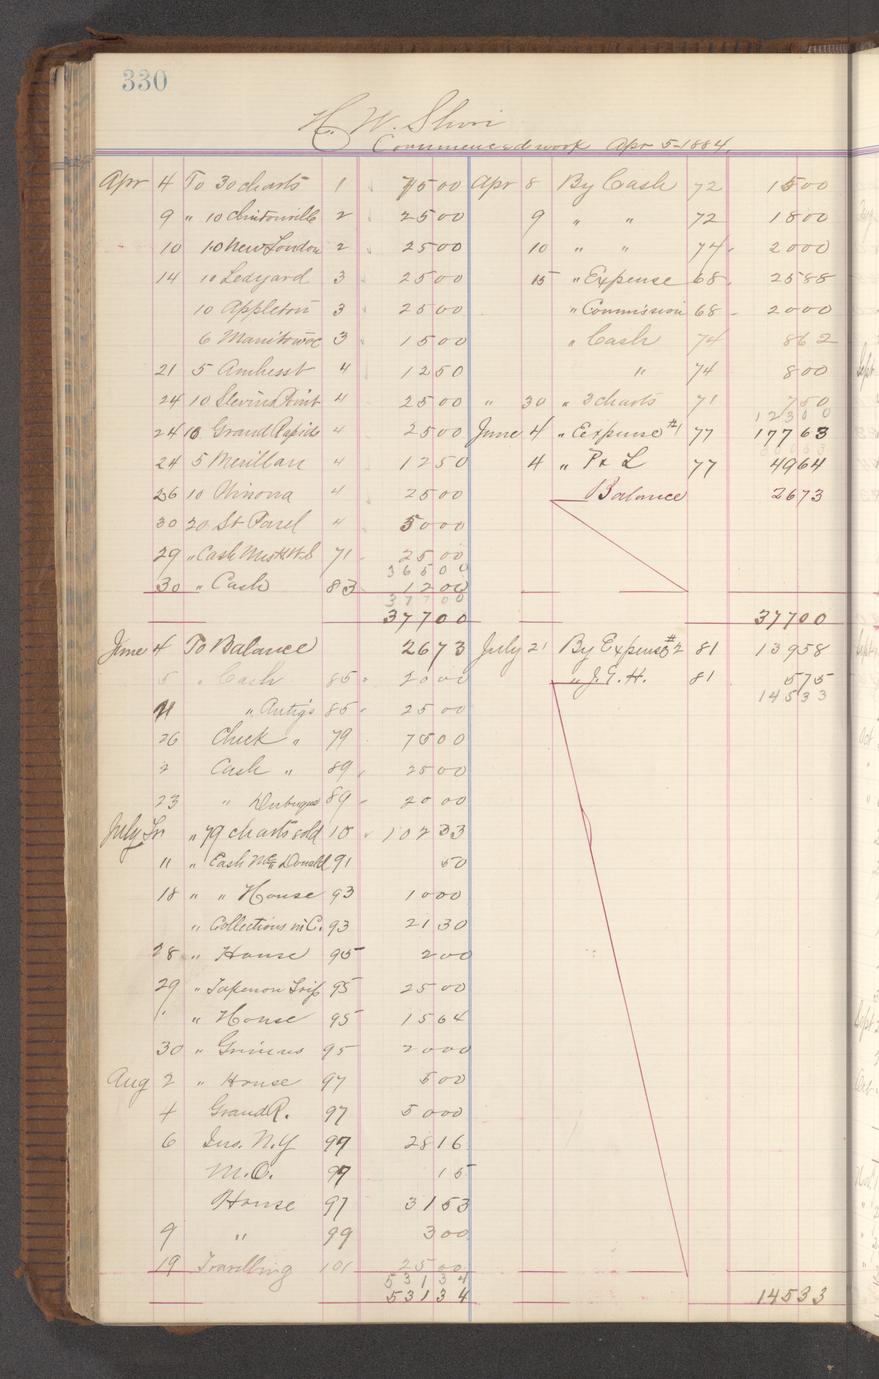 330
H. W. Shori
Commenced work Apr 5-1884.
Apr 4 To 30 charts 1 7500 Apr 8 By Cash 72 1500
9 " 10 Clintonville 2 2500 9 " " 72 1800
10 10 New London 2 2500 10 " " 74 2000
14 10 Ledyard 3 2500 15 " Expense 68 2588
10 Appleton 3 2500 " Commission 68 2000
6 Manitowoc 3 1500 " Cash 74 862
21 5 Amherst 4 1250 " 74 800
24 10 Stevens Point 4 2500 " 30 " 3 charts 71 750
12300
24 10 Grand Rapids 4 2500 June 4 " Expense #1 77 17763
24 5 Merillan 4 1250 4 " P & L 77 4964
26 10 Winona 4 2500 Balance 2673
30 20 St Paul " 5000
29 " Cash 71 2500
36500
30 " Cash 83 1200
37700
37700 37700
June 4 To Balance 2673 July 21 By Expense #2 81 13958
5 " Cash 85 2000 " J. G. H. 81 575
14533
11 " Antigo 85 2500
26 Check " 79 7500
2 Cash " 89 2500
23 " Dubuque 89 2000
July " 79 charts sold 10 10233
11 " Cash McDonald 91 50
18 " " House 93 1000
" Collections in C. 93 2130
28 " House 95 200
29 " 95 2500
" " House 95 1564
30 " 95 2000
Aug 2 " House 97 500
4 Grand R. 97 5000
6 Ins. N.Y 97 2816
M.O. 97 15
House 97 3153
9 " 99 300
19 Travelling 101 2500
53134
53134 14533